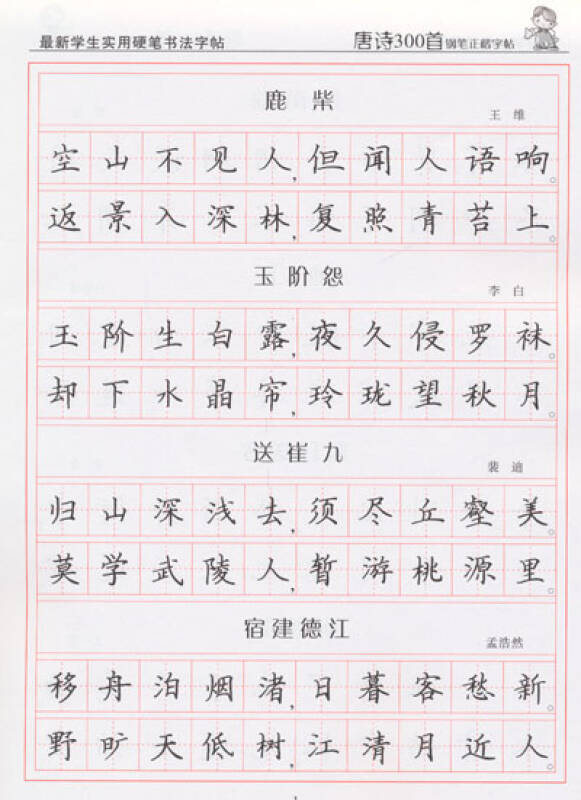 最新学生实用硬笔书法字帖
唐诗300首 钢笔正楷字帖
鹿柴
王维
空山不见人,但闻人语响。
返景入深林,复照青苔上。
玉阶怨
李白
玉阶生白露,夜久侵罗袜。
却下水晶帘,玲珑望秋月。
送崔九
裴迪
归山深浅去,须尽丘壑美。
莫学武陵人,暂游桃源里。
宿建德江
孟浩然
移舟泊烟渚,日暮客愁新。
野旷天低树,江清月近人。
1